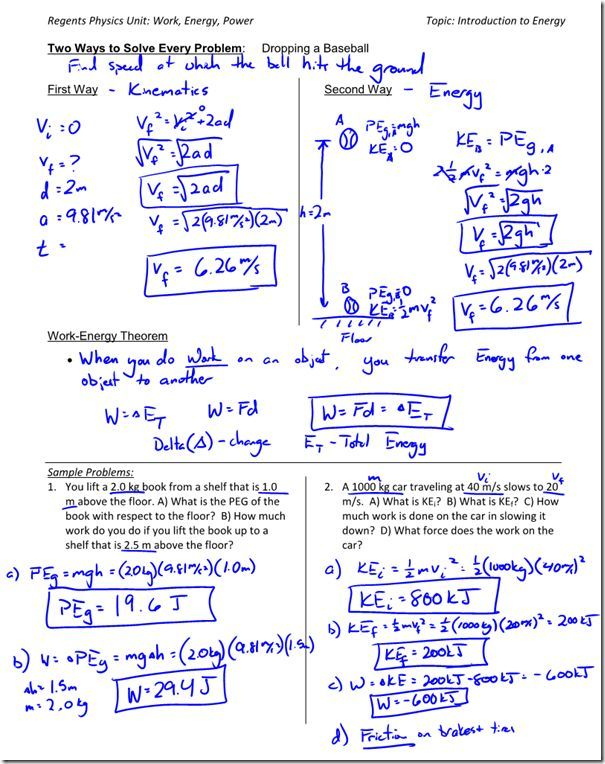 Regents Physics Unit: Work, Energy, Power
Topic: Introduction to Energy
Two Ways to Solve Every Problem: Dropping a Baseball
Find speed at which the ball hits the ground
First Way - Kinematics
Vi = 0
Vf = ?
d = 2m
a = 9.81 m/s²
t =
Vf² = Vi² + 2ad
0
√Vf² = √2ad
Vf = √2ad
Vf = √2(9.81 m/s²)(2m)
Vf = 6.26 m/s
Second Way - Energy
A
PEg,A = mgh
KEA = 0
h = 2m
B
PEg,B = 0
KEB = ½mvf²
Floor
KEB = PEg,A
2 ½mVf² = mgh·2
√Vf² = √2gh
Vf = √2gh
Vf = √2(9.81 m/s²)(2m)
Vf = 6.26 m/s
Work-Energy Theorem
• When you do Work on an object, you transfer Energy from one
object to another
W = ΔET W = Fd W = Fd = ΔET
Delta (Δ) - change ET - Total Energy
Sample Problems:
1. You lift a 2.0 kg book from a shelf that is 1.0
m above the floor. A) What is the PEG of the
book with respect to the floor? B) How much
work do you do if you lift the book up to a
shelf that is 2.5 m above the floor?
a) PEg = mgh = (2.0kg)(9.81 m/s²)(1.0m)
PEg = 19.6 J
b) W = ΔPEg = mgΔh = (2.0kg)(9.81 m/s²)(1.5m)
Δh = 1.5m
m = 2.0kg
W = 29.4 J
m Vi Vf
2. A 1000 kg car traveling at 40 m/s slows to 20
m/s. A) What is KEi? B) What is KEf? C) How
much work is done on the car in slowing it
down? D) What force does the work on the
car?
a) KEi = ½mvi² = ½(1000kg)(40 m/s)²
KEi = 800 kJ
b) KEf = ½mvf² = ½(1000kg)(20 m/s)² = 200 kJ
KEf = 200 kJ
c) W = ΔKE = 200kJ - 800kJ = -600kJ
W = -600kJ
d) Friction on brakes + tires